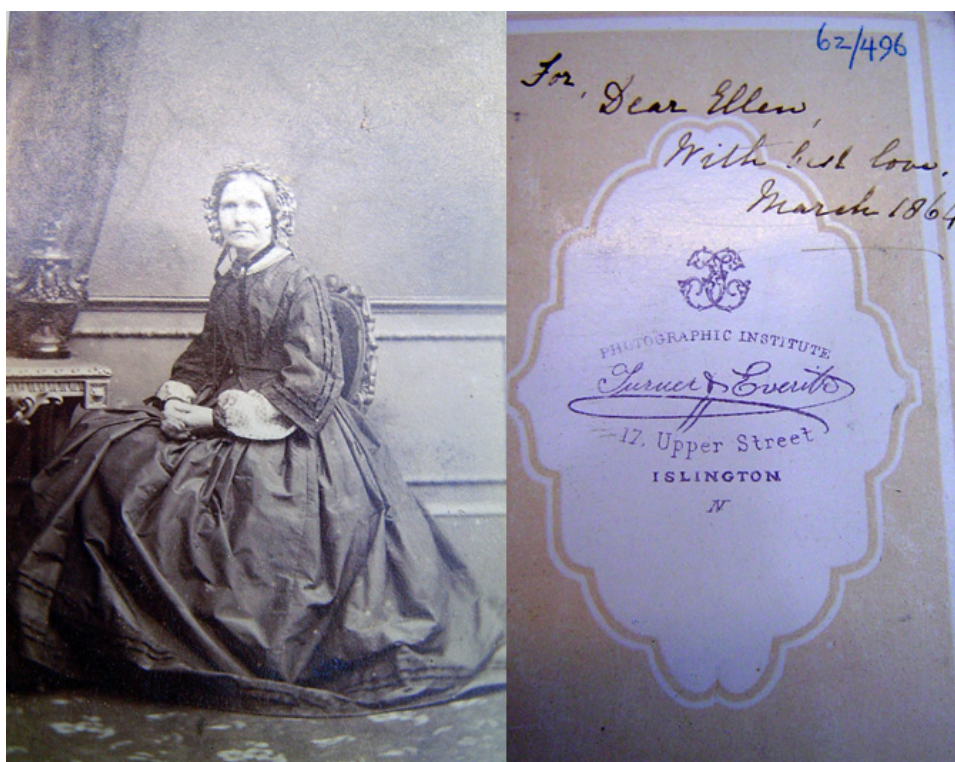 62/496
For,
Dear Ellen,
With best love.
March 1864
PHOTOGRAPHIC INSTITUTE
Turner & Everitt
17, Upper Street
ISLINGTON
N